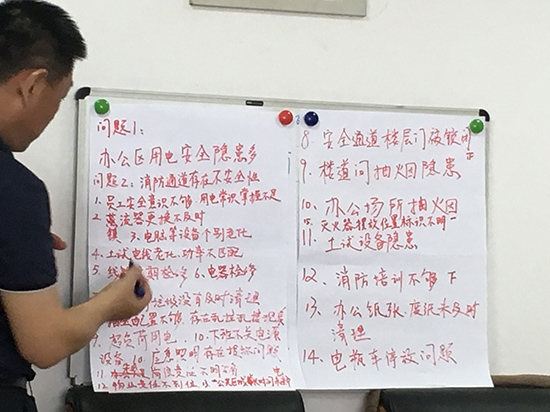 问题1:
办公区用电安全隐患多
问题2:消防通道存在不安全性
1. 员工安全意识不够,用电常识掌握不足
2. 蒸流器更换不及时
镇 3. 电脑等设备个别老化
4. 土试电线老化、功率不匹配
5. 线 期检修 6. 电器检修
没有及时清通
配置不够,存在乱拉乱接现象
9. 超负荷用电 10. 下班不关电源
设备、10. 应急照明存在损坏问题
11. 责任不明确
12. 物业责任不到位
8. 安全通道楼层门被锁闭
9. 楼道间抽烟隐患
10. 办公场所抽烟
5. 灭火器摆放位置标识不明"
11. 土试设备隐患
12. 消防培训不够下
13. 办公纸张、废纸未及时
清理
14. 电瓶车停放问题